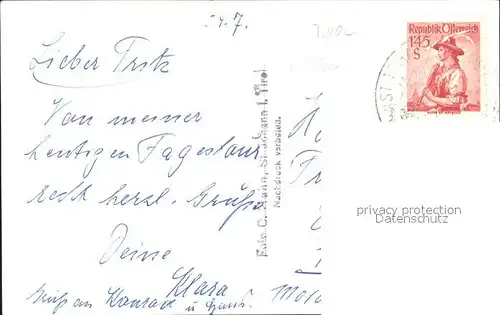 Lieber Fritz
Von meiner
heutigen Tagestour
recht herzl. Grüße
Deine
Klara
Gruß an Konrad u. Hans.
Foto C. Mann, St. Johann i. Tirol
Nachdruck verboten.
Republik Österreich
145
S
privacy protection
Datenschutz